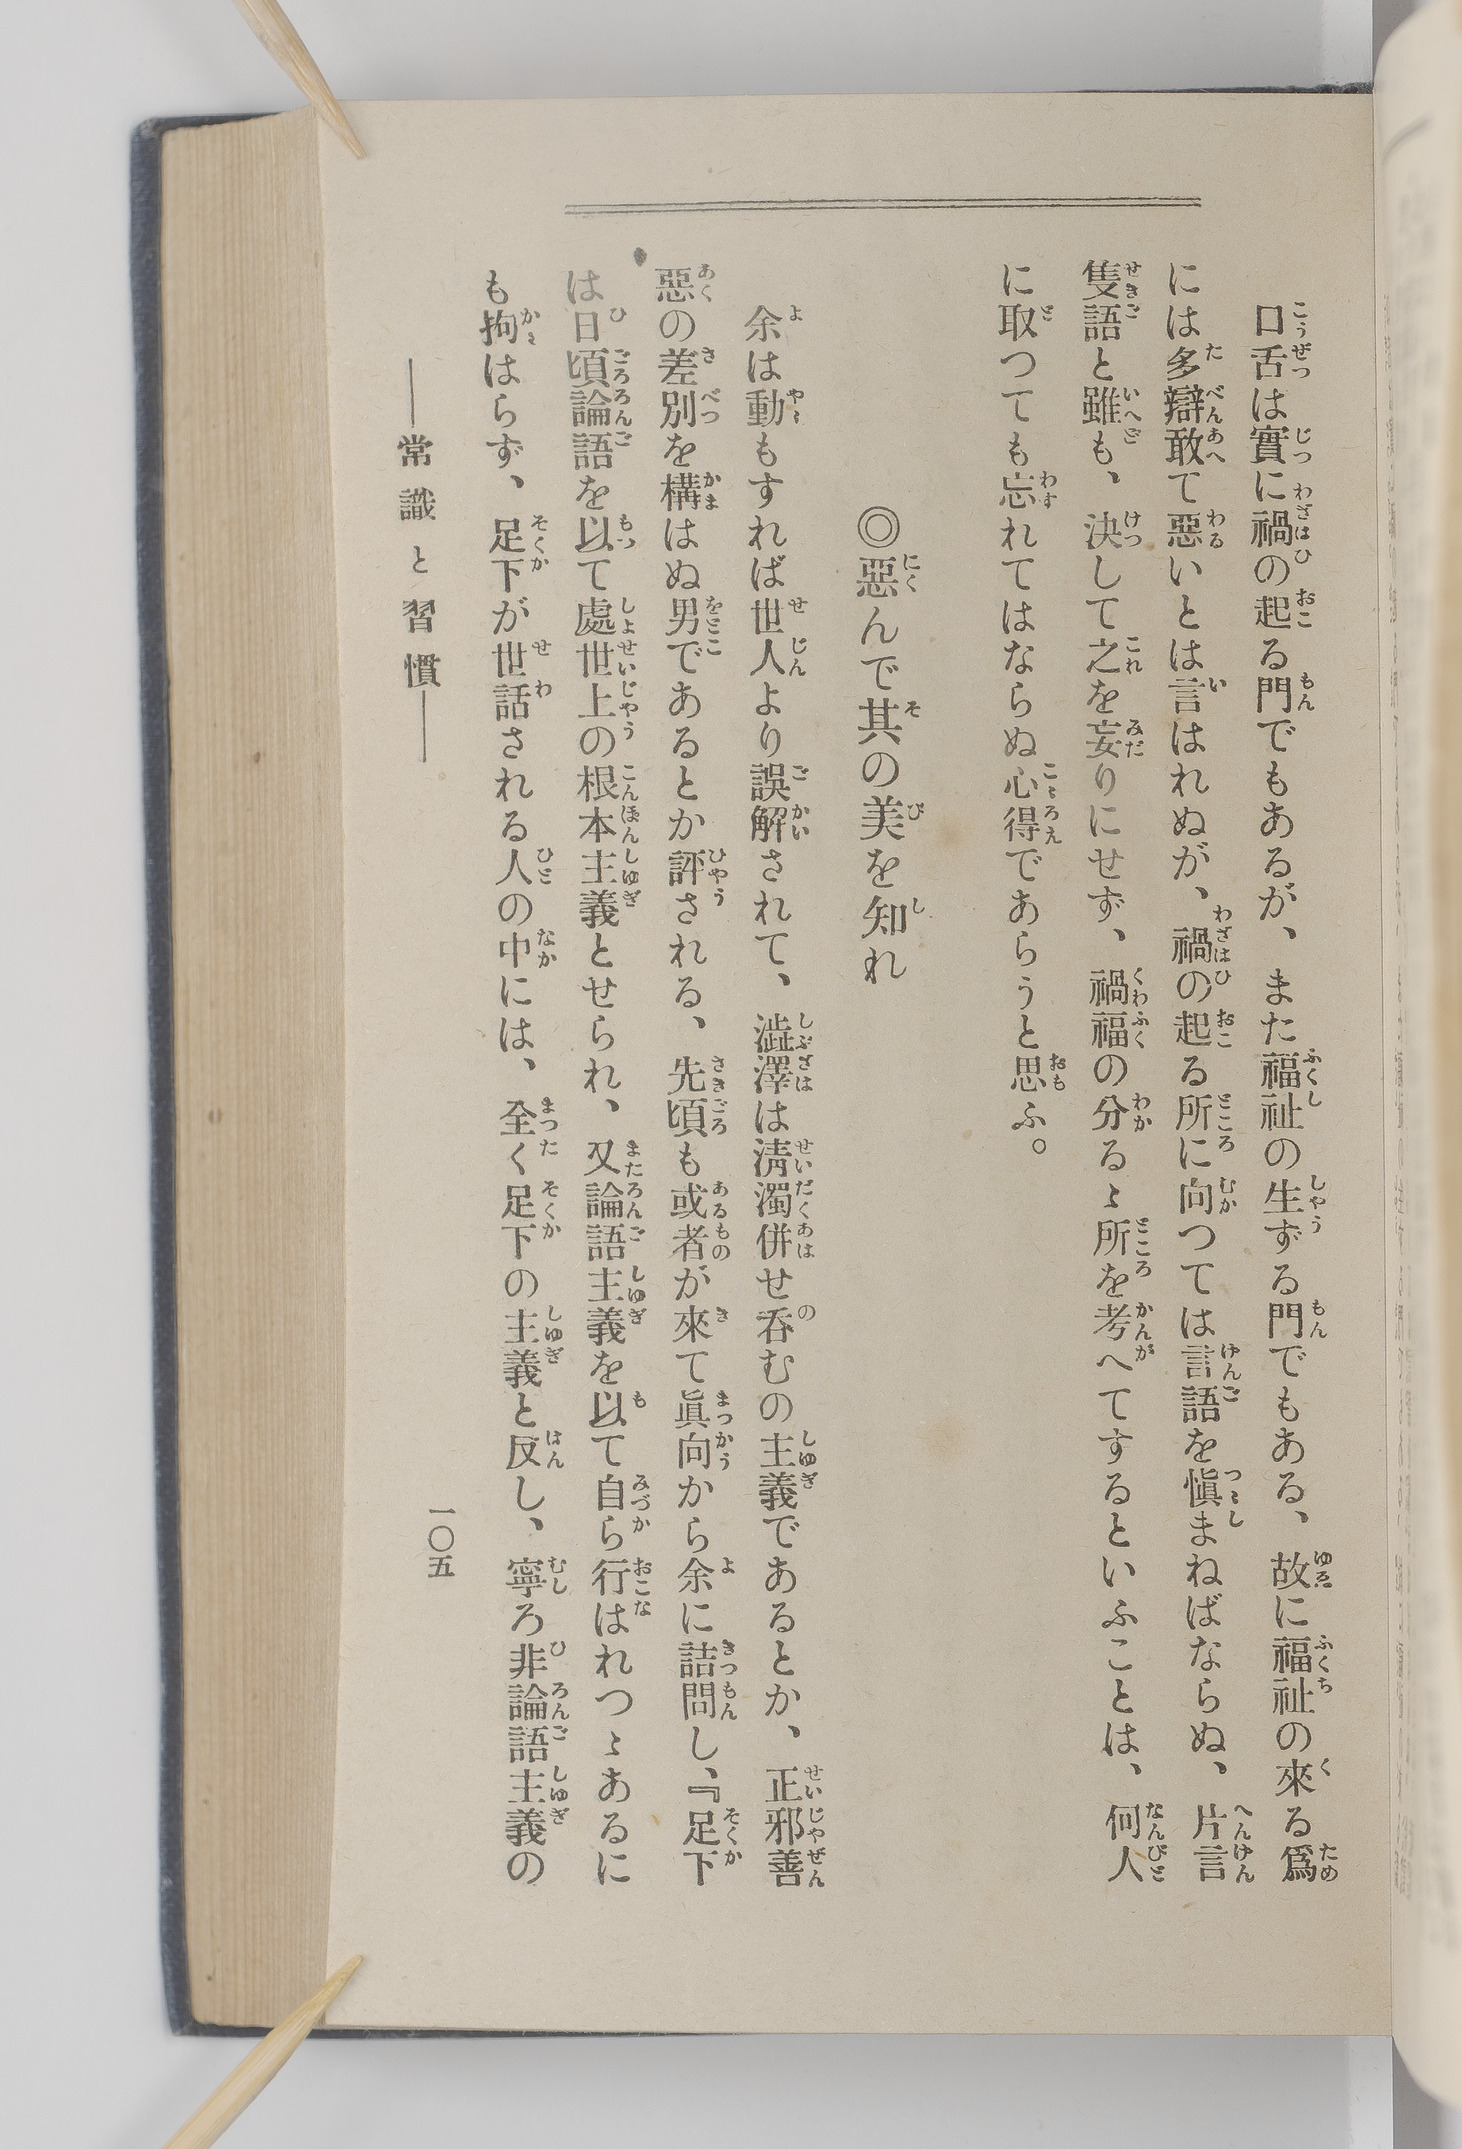 口舌は實に禍の起る門でもあるが、また福祉の生ずる門でもある、故に福祉の來る爲
には多辯敢て惡いとは言はれぬが、禍の起る所に向つては言語を愼まねばならぬ、片言
隻語と雖も、決して之を妄りにせず、禍福の分るゝ所を考へてするといふことは、何人
に取つても忘れてはならぬ心得であらうと思ふ。
◎惡んで其の美を知れ
余は動もすれば世人より誤解されて、澁澤は淸濁併せ呑むの主義であるとか、正邪善
惡の差別を構はぬ男であるとか評される、先頃も或者が來て眞向から余に詰問し、『足下
は日頃論語を以て處世上の根本主義とせられ、又論語主義を以て自ら行はれつゝあるに
も拘はらず、足下が世話される人の中には、全く足下の主義と反し、寧ろ非論語主義の
――常識と習慣――
一〇五